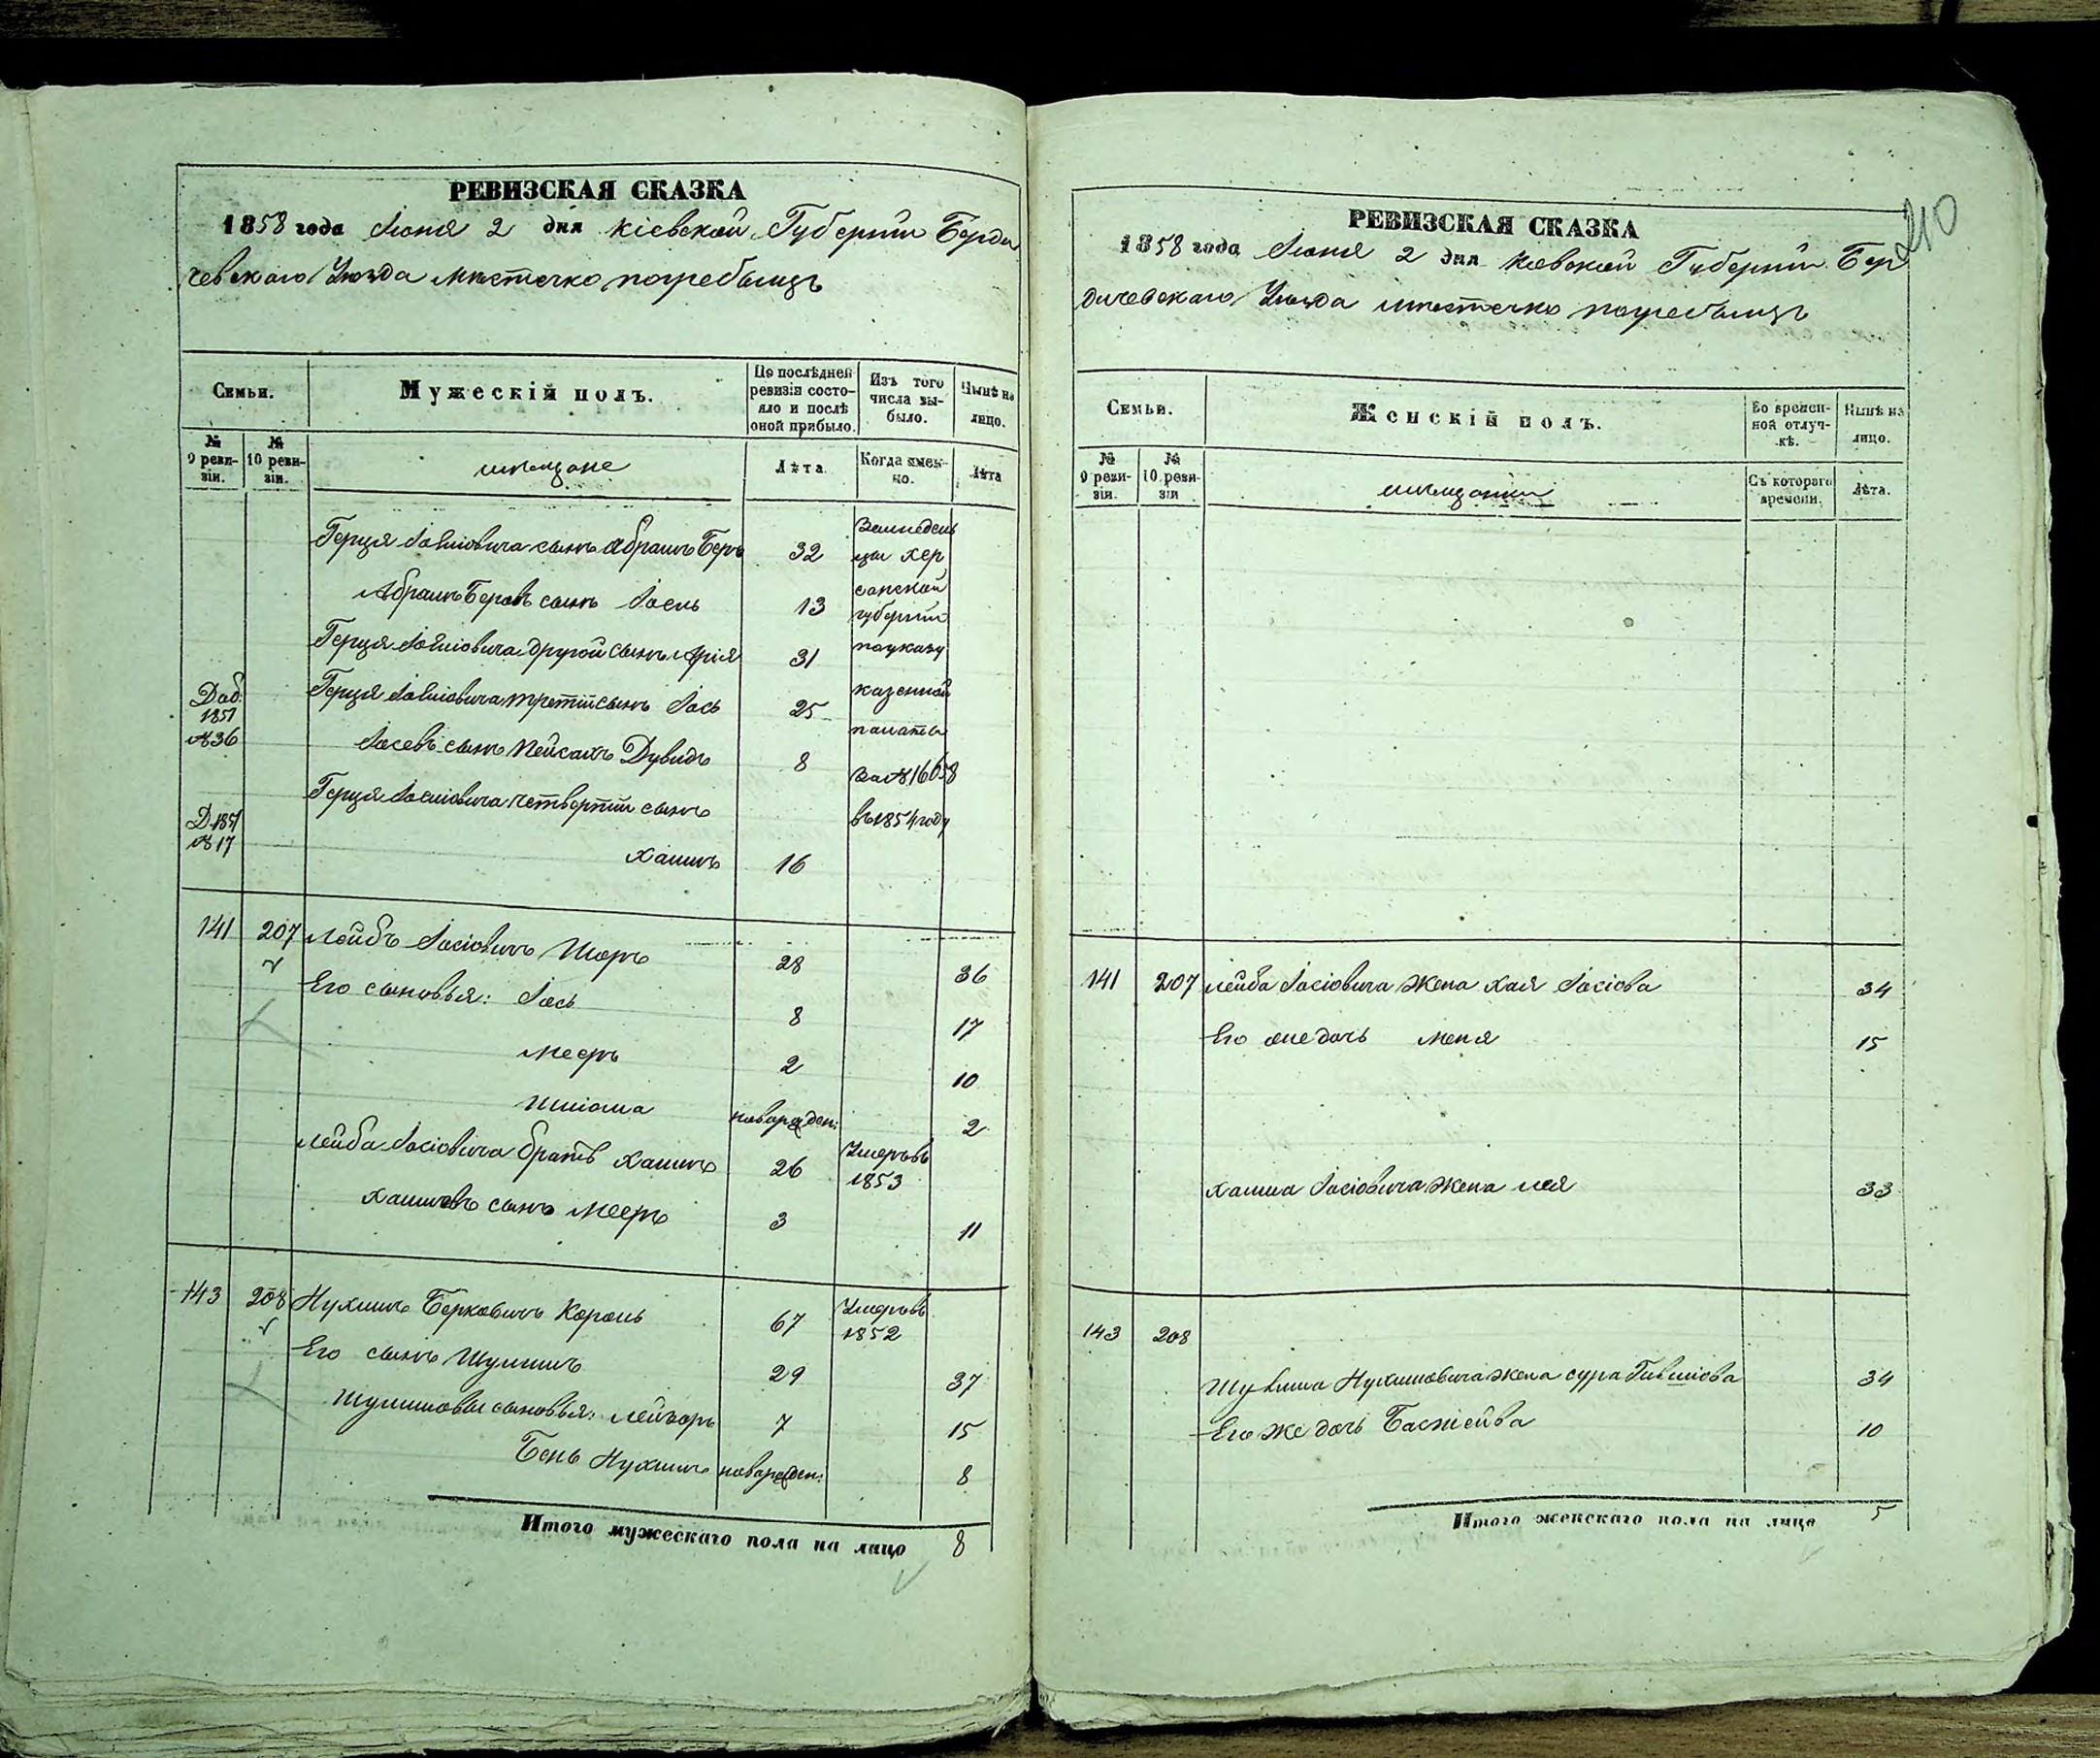 РЕВИЗСКАЯ СКАЗКА
1858 года Іюня 2 дня Кіевской Губерніи Берди
чевскаго Уѣзда мѣстечко погребыщъ
Семьи.
Мужескій полъ.
По послѣдней ревизіи состояло и послѣ оной прибыло.
Изъ того числа выбыло.
Нынѣ на лицо.
№ 9 ревизіи.
№ 10 ревизіи.
мѣщане
Лѣта.
Когда именно.
Лѣта
Герця Іосіовича сынъ Абрамъ Беръ 32
Абрамъ Беровъ сынъ Іосель 13
Герця Іосіовича другой сынъ Арія 31
Доб. 1851 №36 Герця Іосіовича третій сынъ Іось 25
Іосевъ сынъ Пейсахъ Дувидъ 8
Герця Іосіовича четвертый сынъ
Д. 1851 №17 Хаимъ 16
Земледель
цы хер
сонской
губерніи
по указу
казенной
палаты
за №16658
въ 1854 году
141 207 Лейбъ Іосіовичъ Шоръ 28 36
Его сыновья: Іось 8 17
Мееръ 2 10
Шліома новорожден: 2
Лейба Іосіовича братъ Хаимъ 26 Умеръ въ 1853
Хаимовъ сынъ Мееръ 3 11
143 208 Нухимъ Берковичъ Король 67 Умеръ въ 1852
Его сынъ Шулимъ 29 37
Шулимовы сыновья: Лейзоръ 7 15
Бень Нухимъ новорожден: 8
Итого мужескаго пола на лицо 8
210
РЕВИЗСКАЯ СКАЗКА
1858 года Іюня 2 дня Кіевской Губерніи Бер
дичевскаго Уѣзда мѣстечко погребыщъ
Семьи.
Женскій полъ.
Во временной отлучкѣ.
Нынѣ на лицо.
№ 9 ревизіи.
№ 10 ревизіи
мѣщанки
Съ котораго времени.
Лѣта.
141 207 Лейба Іосіовича жена Хая Іосіова 34
Его же дочь Меня 15
Хаима Іосіовича жена Лея 33
143 208
Шулима Нухимовича жена Сура 34
Его же дочь Басшейва 10
Итого женскаго пола на лицо 5